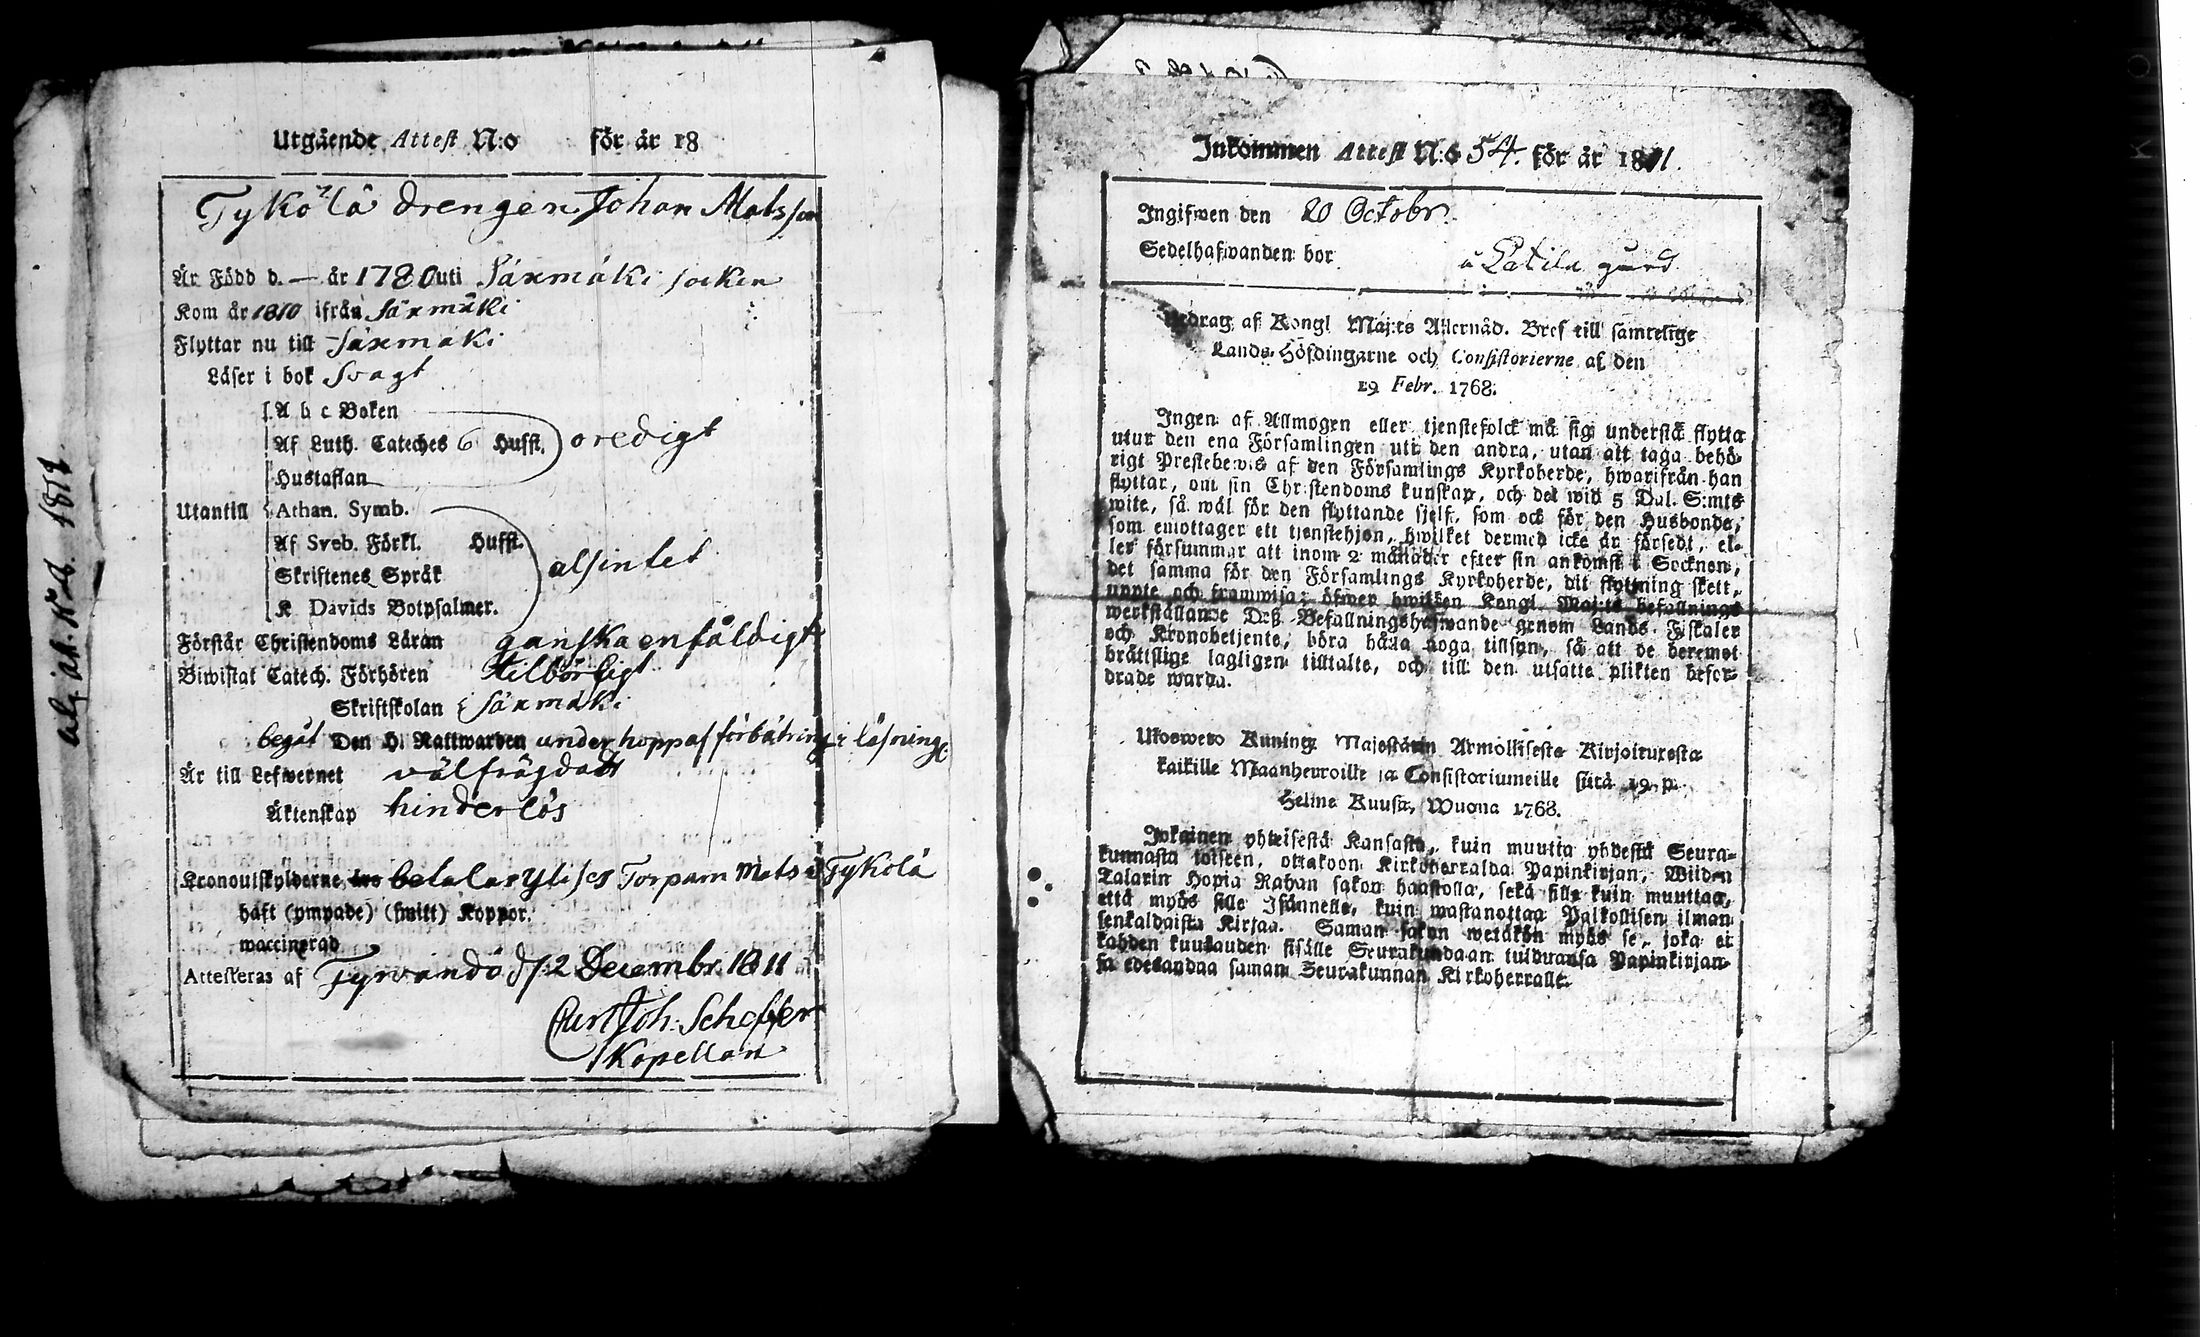 Utgående Attest N:o för år 18
Tykölä drengen Johan Matsson
Är Född d. — år 1780 uti Säxmäki socken
Kom år 1810 ifrån Säxmäki
Flyttar nu till Säxmäki
Läser i bok svagt
A b c Boken
Af Luth. Cateches 6 Hufst. oredigt
Hustaflan
Utantill Athan. Symb.
Af Sveb. Förkl. Hufst.
alsintet
Skriftenes Språk
K Davids Botpsalmer.
Förstår Christendoms Läran ganska enfäldigt
Biwistat Catech. Förhören tilbörligt
Skriftskolan i Säxmäki
begåt Den H. Nattwarden under hopp af förbätring i läsning
Är till Lefwernet välfrägdad
Äktenskap hinderlös
Kronoutskylderne betalas Torparn Mats i Tykölä
haft (ympade) (smitt) Koppor.
waccinerad
Attesteras af Tyrvändö d 12 Decembr. 1811
Carl Joh. Scheffer
Kapellan
1811.
Inkommen Attest N:o 54. för år 1811.
Ingifwen den 20 Octobr.
Sedelhafwanden bor å Latila gård
Utdrag af Kongl Maj:ts Allernåd. Bref till samtelige
Lands-Höfdingarne och Consistorierne af den
19 Febr. 1768.
Ingen af Allmogen eller tjenstefolck må sig understå flytta
utur den ena Församlingen uti den andra, utan att taga behö-
rigt Prestebewis af den Församlings Kyrkoherde, hwarifrån han
flyttar, om sin Christendoms kunskap, och det wid 5 Dal. S:mts
wite, så wäl för den flyttande sjelf, som ock för den Husbonde,
som emottager ett tjenstehjon, hwilket dermed icke är försedt, el-
ler försummar att inom 2 månader efter sin ankomst i Socknen,
det samma för den Församlings Kyrkoherde, dit flyttning skett,
uppte och framwisa; öfwer hwilken Kongl. Maj:ts befallnings
werkställande Deß Befallningshafwande genom Lands-Fiskaler
och Kronobetjente, böra hålla noga tillsyn, så att de deremot
bråttslige lagligen tilltalte, och till den utsatte plikten befor-
drade warda.
Ulosweto Kuning: Majestätin Armollisesta Kirjoituxesta
kaikille Maanherroille ja Consistoriumeille siitä 19. p.
Helme Kuusa, Wuona 1768.
Jokainen yhteisestä Kansasta, kuin muutta yhdestä Seura-
kunnasta toiseen, ottakoon Kirkoherralda Papinkirjan, Wiiden
Talarin Hopia Rahan sakon haastolla, sekä sille kuin muuttaa,
että myös sille Isännelle, kuin wastanottaa Palkollisen ilman
senkaldaista Kirjaa. Saman sakon wetäkön myös se, joka ei
kahden kuukauden sisälle Seurakundaan tulduansa Papinkirjan-
sa edesandaa saman Seurakunnan Kirkoherralle.